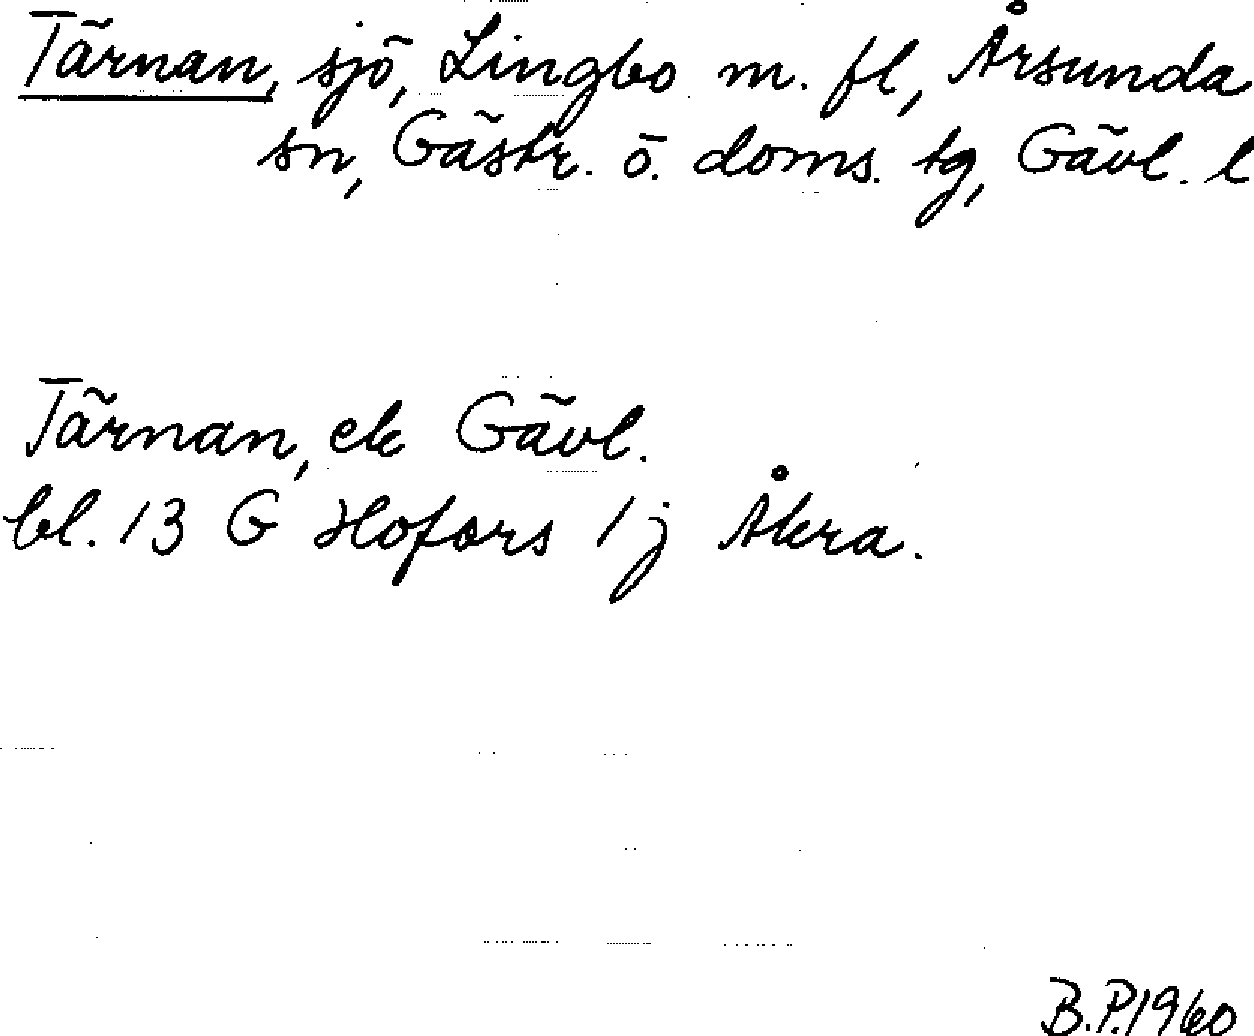 Tärnan, sjö, Lingbo m. fl, Årsunda
sn, Gästr. ö. doms. tg, Gävl. l
Tärnan, ek Gävl.
bl. 13 G Hofors 1 j Åkra.
B.P. 1960